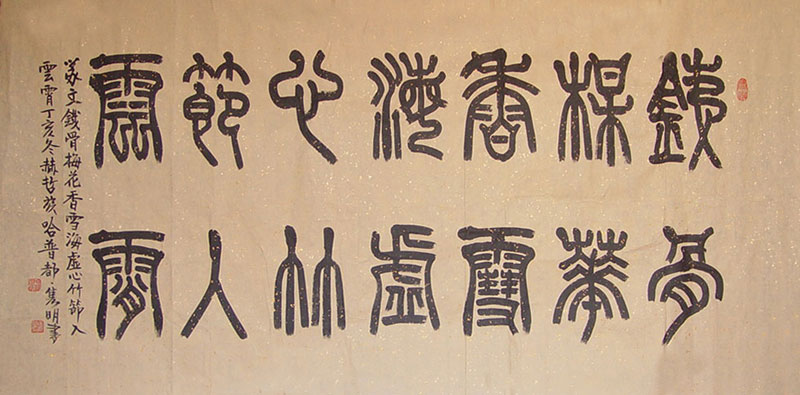 銕骨
楳華
香雪
海虛
心竹
節入
雲霄
篆文鐵骨梅花香雪海虛心竹節入
雲霄丁亥冬赫哲族哈普都·隽明書